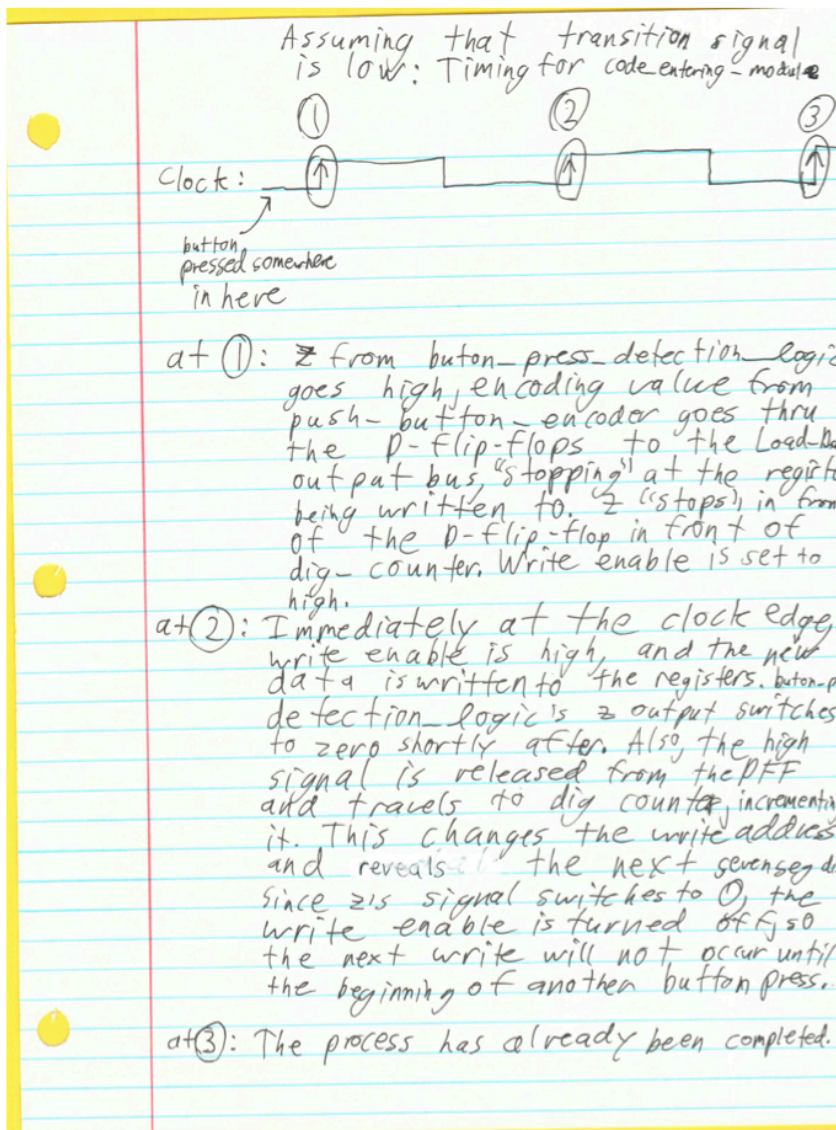 Assuming that transition signal
is low: Timing for code_entering_module
① ② ③
Clock:
button
pressed somewhere
in here
at ①: z from buton_press_detection_logic
goes high, encoding value from
push-button-encoder goes thru
the D-flip-flops to the Load-Da
output bus, "stopping" at the regist
being written to. z "stops", in fron
of the D-flip-flop in front of
dig-counter. Write enable is set to
high.
at ②: Immediately at the clock edge,
write enable is high, and the new
data is written to the registers. buton-p
detection_logic's z output switches
to zero shortly after. Also, the high
signal is released from the DFF
and travels to dig counter, incrementin
it. This changes the write address
and reveals the next sevenseg di
since z's signal switches to 0, the
write enable is turned off, so
the next write will not occur until
the beginning of another button press.
at ③: The process has already been completed.